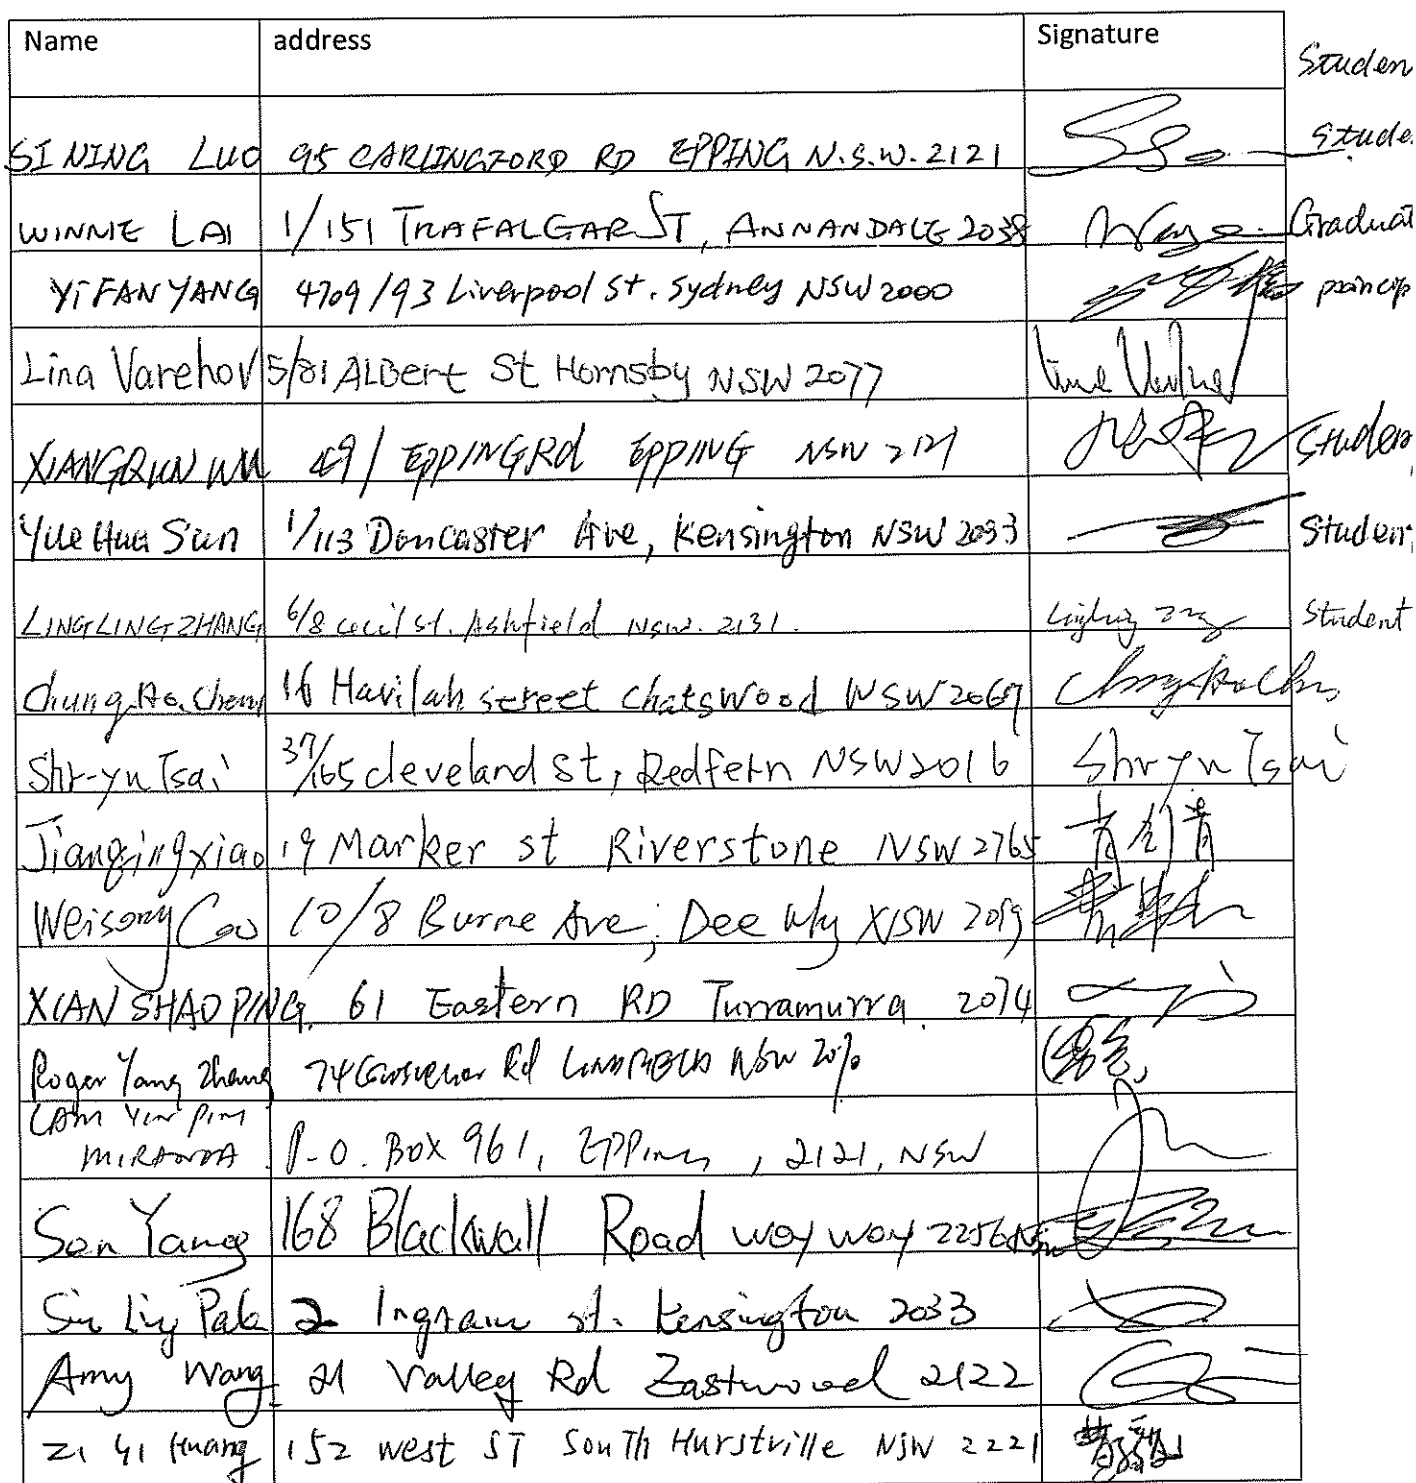 Name address Signature
Studen
SI NING LUO 95 CARLINGFORD RD EPPING N.S.W. 2121 Stude
WINNIE LAI 1/151 TRAFALGAR ST, ANNANDALE 2038 Graduat
YI FAN YANG 4709/93 Liverpool St. Sydney NSW 2000 princip
Lina Varehov 5/81 ALBert St Hornsby NSW 2077
XIANGQUN WU 49/ EPPING Rd EPPING NSW 2121 Studen
Yue Hua Sun 1/113 Doncaster Ave, Kensington NSW 2033 Studen
LINGLING ZHANG 6/8 cecil St. Ashfield NSW. 2131. Student
Chung Ho. Chen 16 Havilah street Chatswood NSW 2067
Shr-yu Tsai 37/165 cleveland St, Redfern NSW 2016 Shr yu Tsai
Jianqing xiao 19 Marker st Riverstone NSW 2765 肖剑青
Weisong Cao 10/8 Burne Ave, Dee Why NSW 2019
XIAN SHAO PING. 61 Eastern RD Turramurra. 2074
Roger Yang Zhang 74 Grosvenor Rd LINDFIELD NSW 2070
LAM YIN PING
MIRANDA P.O. BOX 961, EPPing, 2121, NSW
San Yang 168 Blackwall Road woy woy 2256
Siu Ling Pak 2 Ingram st. Kensington 2033
Amy Wang 21 Valley Rd Eastwood 2122
Zi Yi Huang 152 west ST South Hurstville NSW 2221